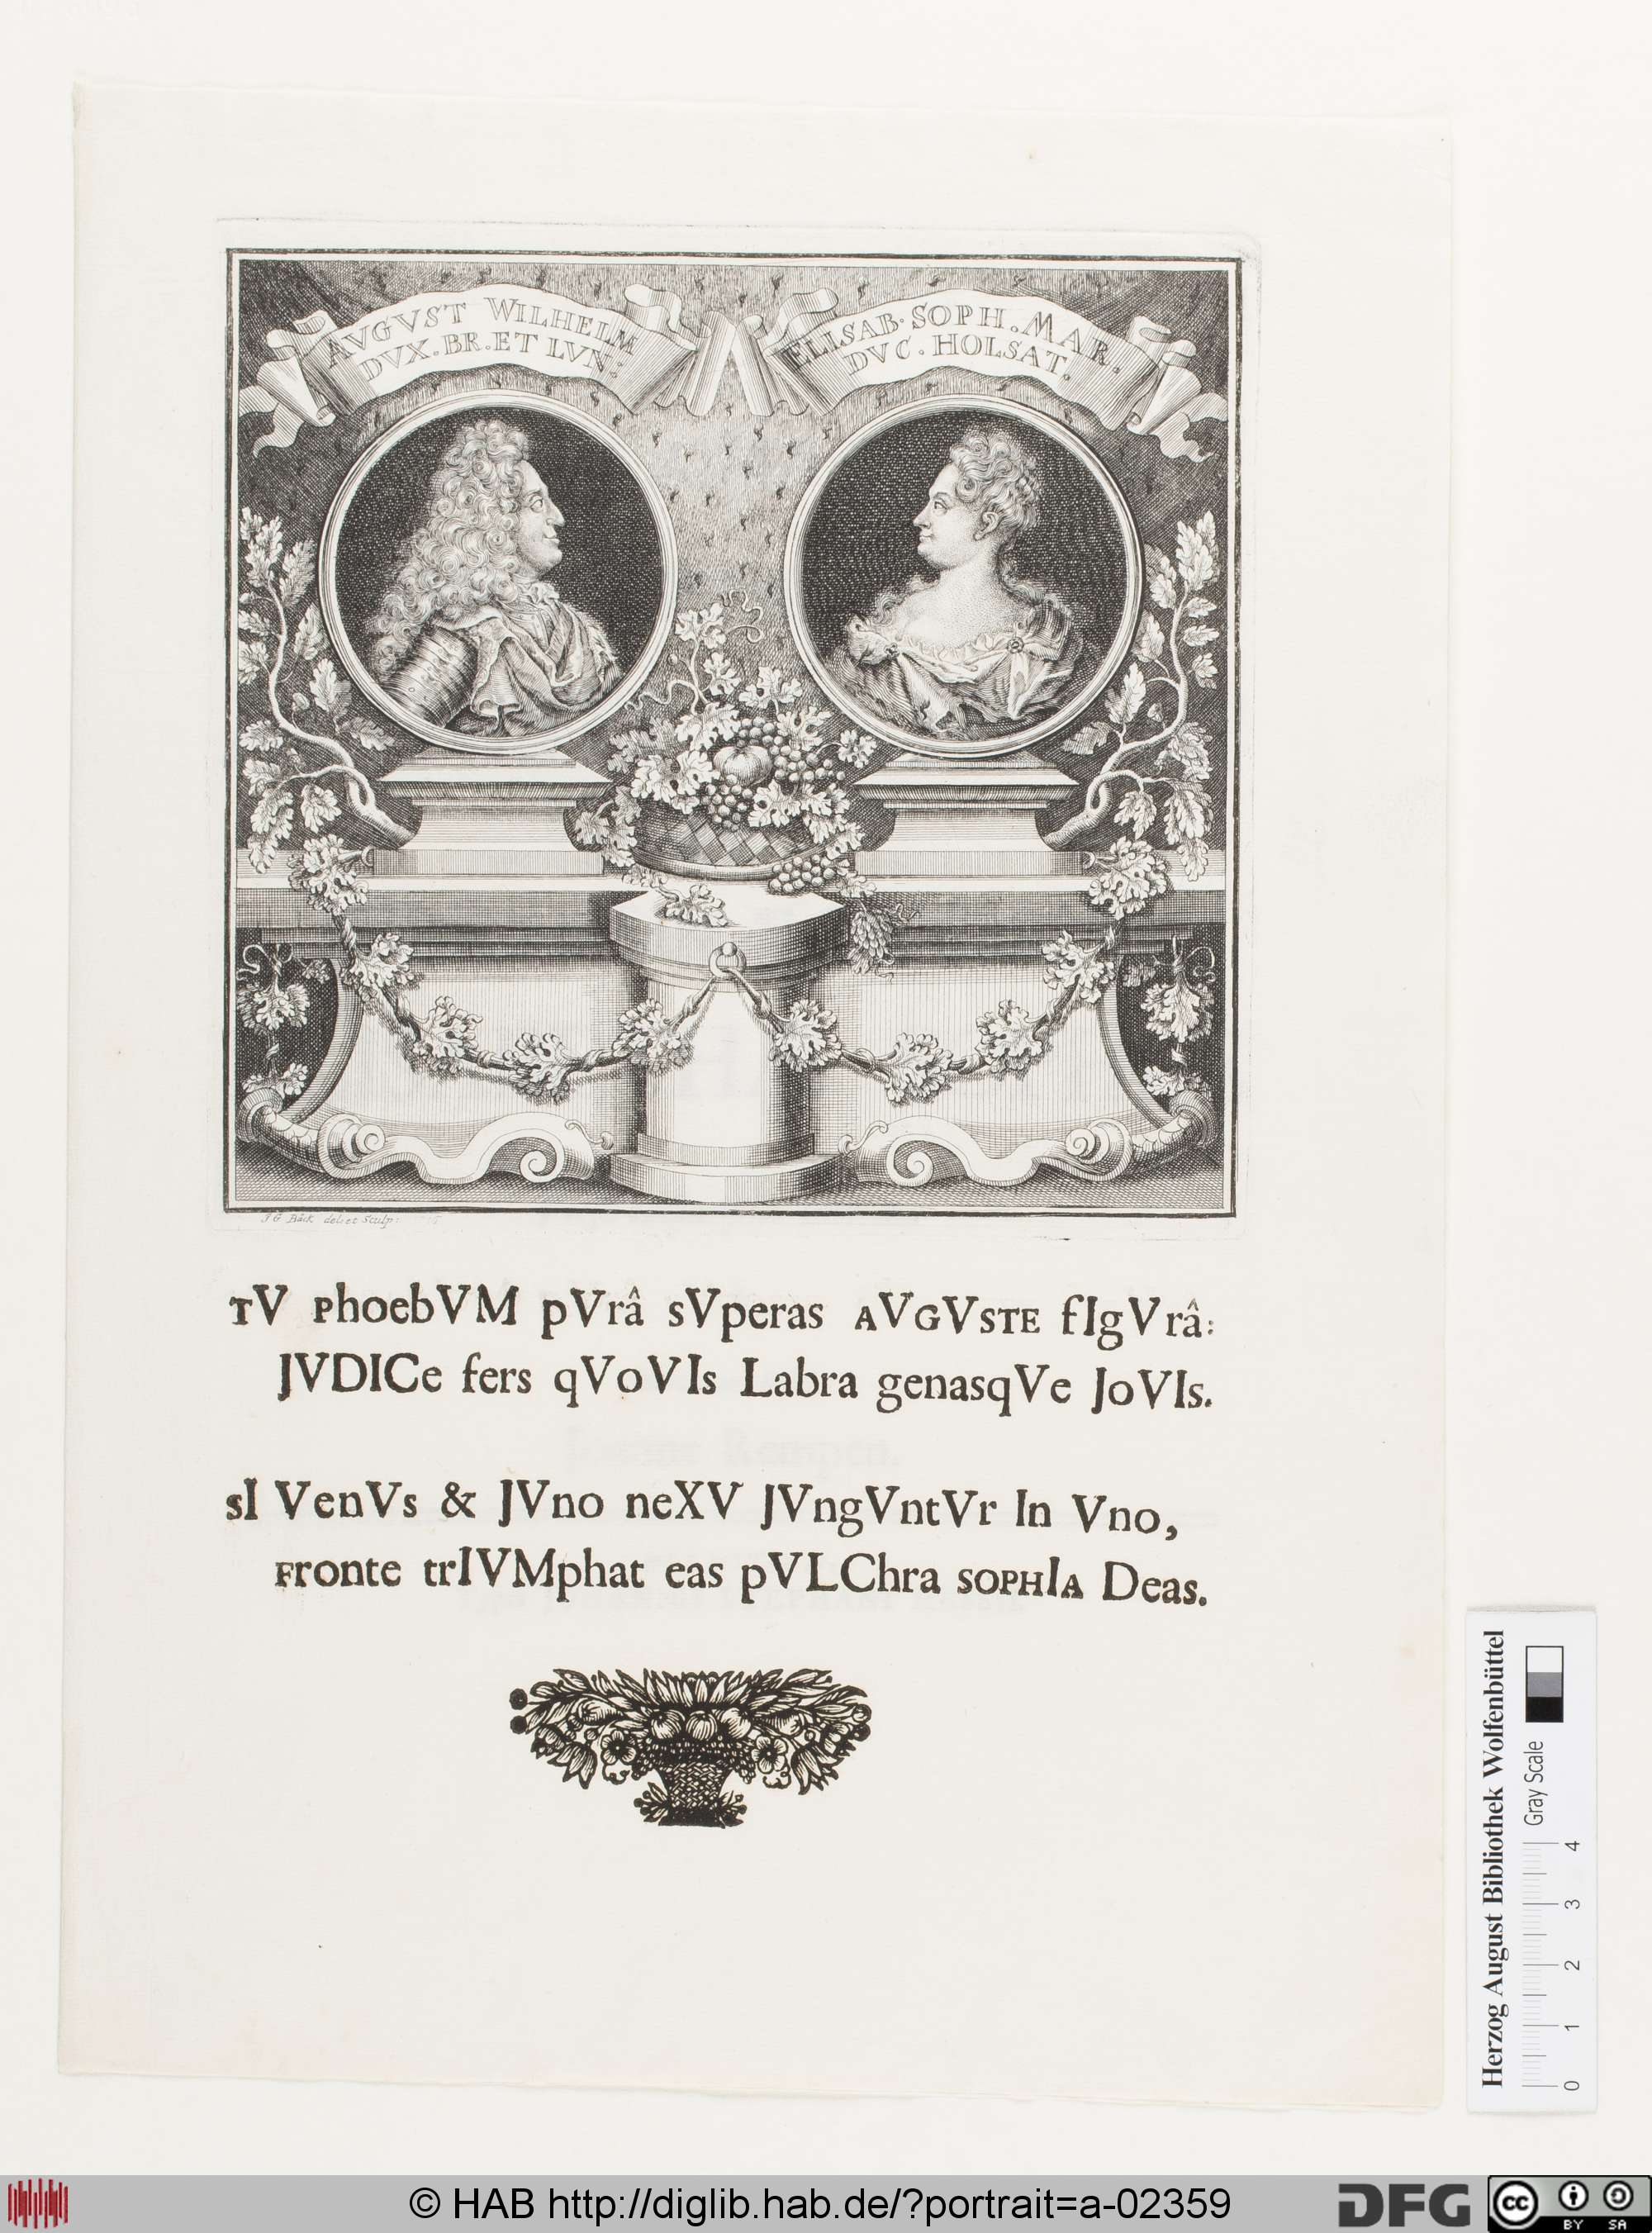 AVGVST WILHELM
DVX. BR. ET LVN:
ELISAB. SOPH. MAR.
DVC. HOLSAT.
J G Bäck del: et Sculp:
TV PhoebVM pVrâ sVperas AVGVSTE fIgVrâ:
JVDICe fers qVoVIs Labra genasqVe JoVIs.
sI VenVs & JVno neXV JVngVntVr In Vno,
Fronte trIVMphat eas pVLChra SOPHIA Deas.
Herzog August Bibliothek Wolfenbüttel
Gray Scale
0 1 2 3 4
© HAB http://diglib.hab.de/?portrait=a-02359
DFG
cc
BY SA